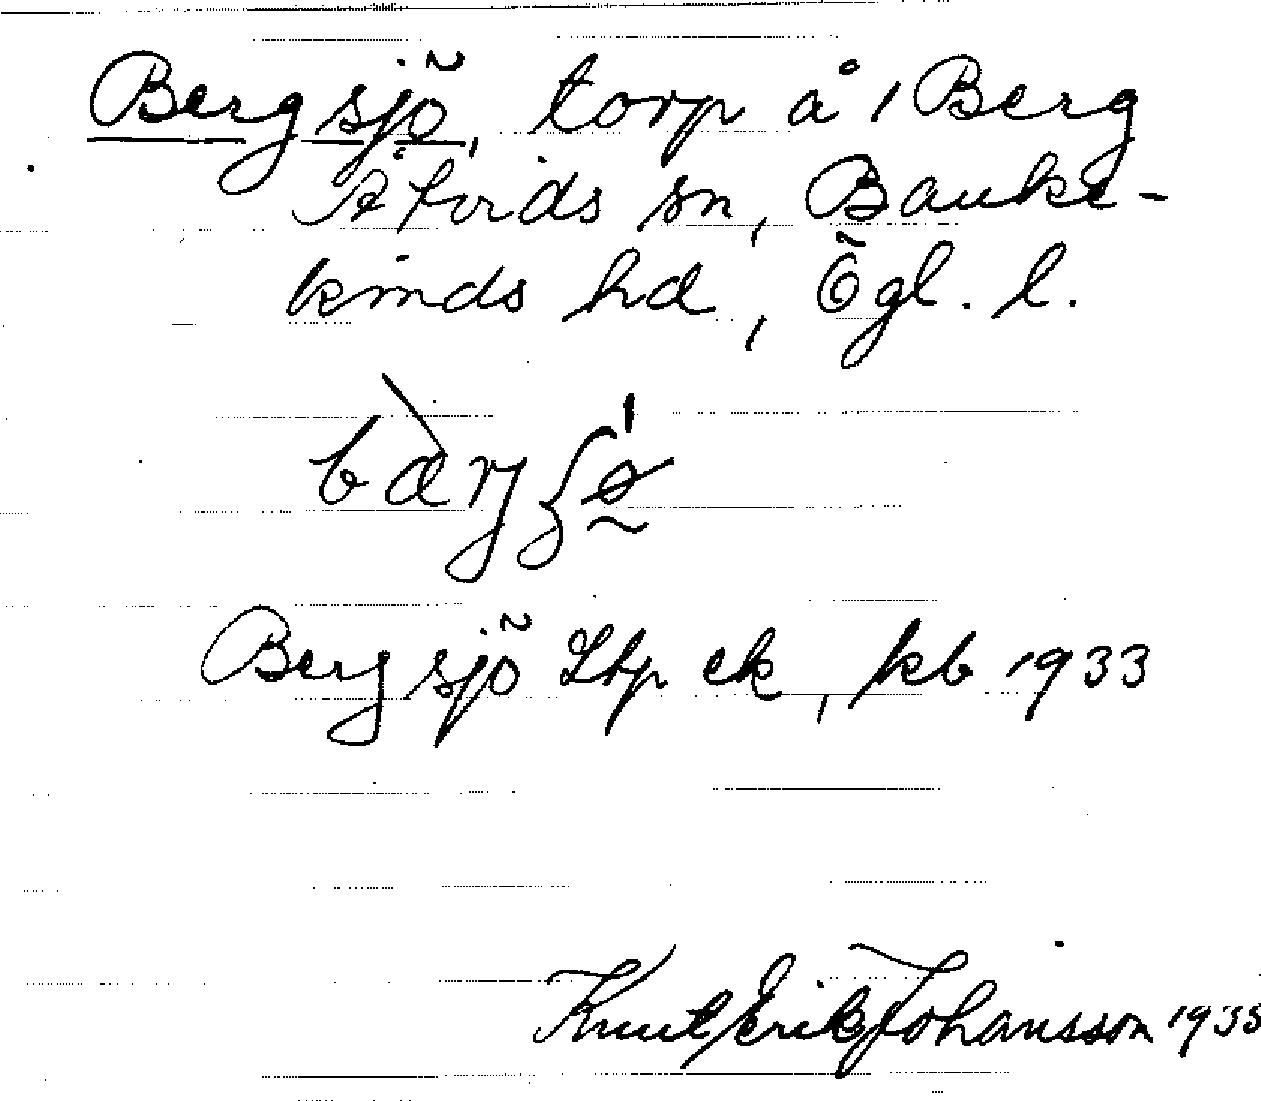 Bergsjö, torp å 1 Berg
Åtvids sn, Banke-
kinds hd, Ögl. l.
Bergsjö Ltp ek, kb 1933
Knut Erik Johansson 1935